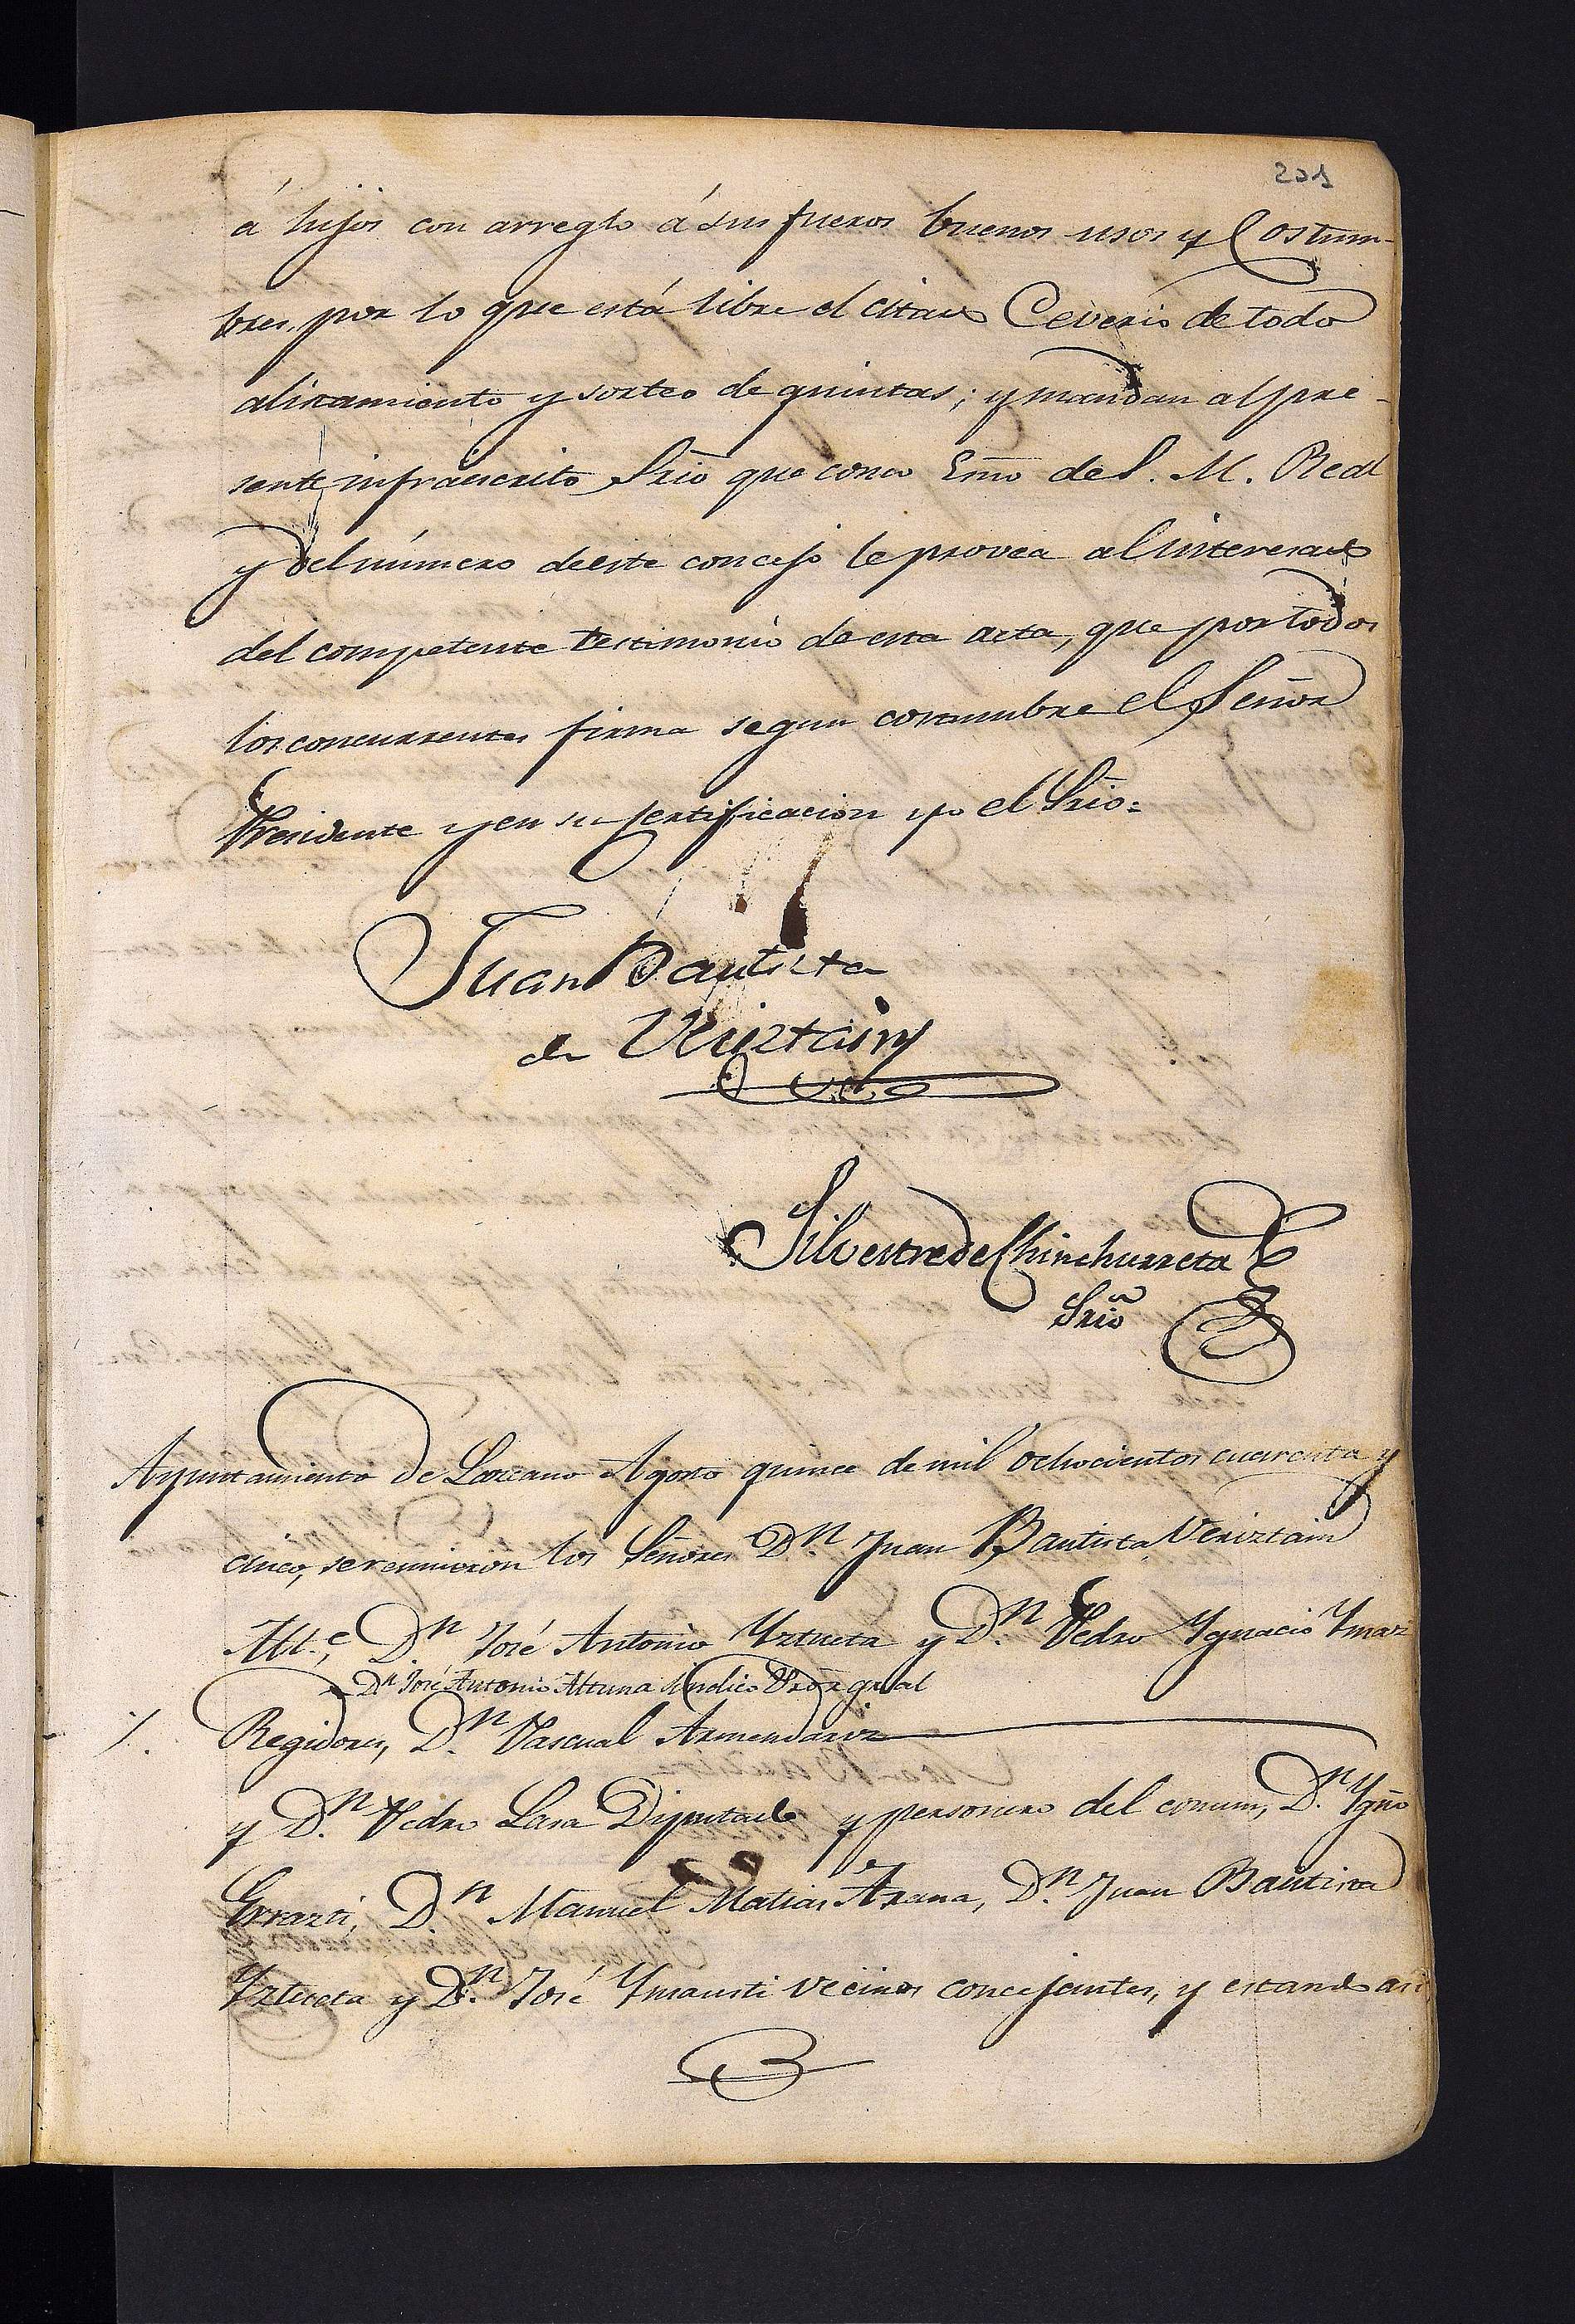 201
á hijos con arreglo á sus fueros buenos usos y Costum-
bres, por lo que está libre el citado Ceverio de todo
alistamiento y sorteo de quintas; y mandan al pre-
sente infraescrito Srio que como Esno de S. M. Real
y del número de este concejo le provea al interesado
del competente testimonio de esta acta, que por todos
los concurrentes firma segun costumbre el Señor
Presidente y en su certificacion yo el Srio=
Juan Bautista
de
Silvestre de Chinchurreta
Srio
Ayuntamiento de Lazcano Agosto quince de mil ochocientos cuarenta y
cinco, se reunieron los Señores Dn. Juan Bautista Veriztain
Alte, Dn. José Antonio Yztueta y Dn. Pedro Ygnacio Ymaz
Dn. José Antonio Altuna sindico Pror gral
Regidores, Dn. Pascual Armendariz
y Dn. Pedro Lasa Diputado y personero del comun, Dn. Ygno
Errazti, Dn. Manuel Matias Arana, Dn. Juan Bautista
Yztueta y Dn. José Ymausti vecinos concejantes, y estando asi